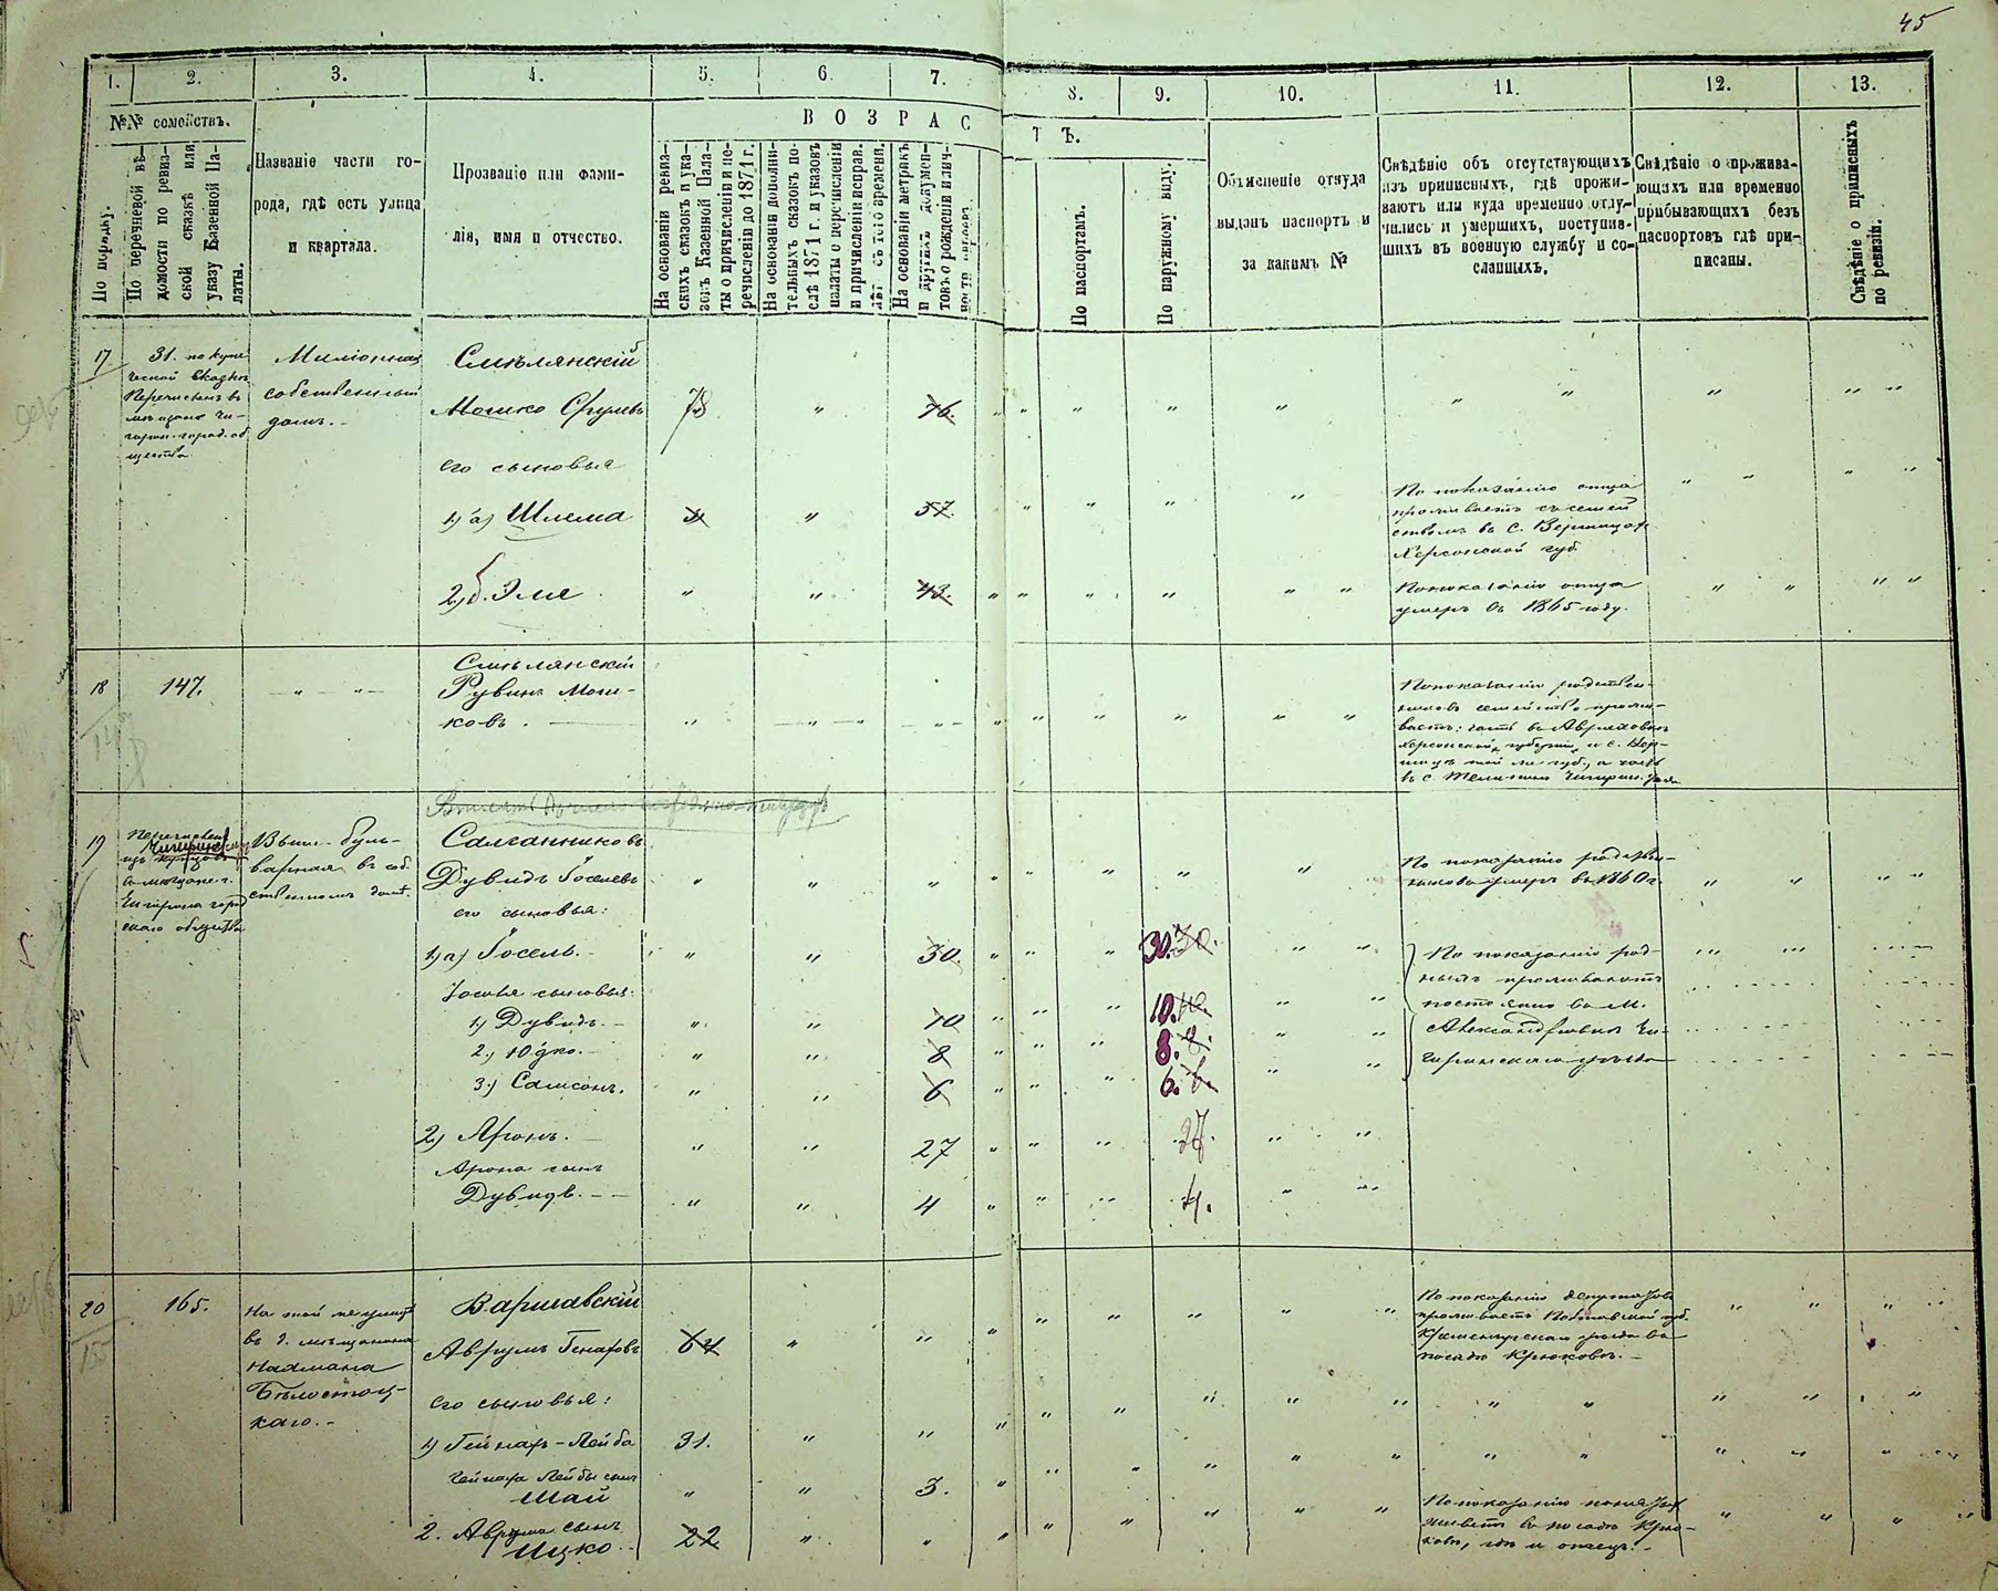 45
1. 2. 3. 4. 5. 6. 7. 8. 9. 10. 11. 12. 13.
№№ семействъ.
По порядку.
По перечневой вѣ-
домости по ревиз-
ской сказкѣ или
указу Казенной Па-
латы.
Названіе части го-
рода, гдѣ есть улица
и квартала.
Прозваніе или фами-
лія, имя и отчество.
ВОЗРАС
ТЪ.
На основаніи ревиз-
скихъ сказокъ и ука-
зовъ Казенной Пала-
ты о причисленіи и пе-
речисленіи до 1871 г.
На основаніи дополни-
тельныхъ сказокъ по-
слѣ 1871 г. и указовъ
палаты о перечисленіи
и причисленіи исправ.
лѣт съ того времени.
На основаніи метрикъ
и другихъ докумен-
товъ о рожденіи или
По паспортамъ.
По наружному виду.
Объясненіе откуда
выданъ паспортъ и
за какимъ №
Свѣдѣніе объ отсутствующихъ
изъ приписныхъ, гдѣ прожи-
ваютъ или куда временно отлу-
чились и умершихъ, поступив-
шихъ въ военную службу и со-
сланныхъ.
Свѣдѣніе о прожива-
ющихъ или временно
прибывающихъ безъ
паспортовъ гдѣ при-
писаны.
Свѣдѣніе о приписныхъ
по ревизіи.
17
31. по купе
ческой
Перечисленъ въ
мѣщане Чи-
город. об
щества
Миліонная
собственный
домъ.
Смѣлянскій
Мошко Срулевъ 76.
его сыновья
1) а) Шлема 57.
По показанію отца
проживаетъ съ семей
ствомъ въ с.
Херсонской губ.
2) б. Эле 43.
По показанію отца
умеръ въ 1865 году.
18
147.
Смѣлянскій
Рувинъ Мош-
ковъ.
По показанію родствен-
никовъ семейство прожи-
ваетъ: часть въ
Херсонской губерніи, и с.
той же губ., а часть
въ с. Телепино Чигирин.
19
Перечислен
изъ
въ мѣщане
Чигирина город
скаго общества
буль-
варная въ соб.
ственномъ домѣ.
Салганниковъ
Дувидъ Іоселевъ
По показанію родствен-
никовъ умеръ въ 1860 г.
его сыновья:
1) а) Іосель. 30. 30. 30.
По показанію род-
ныхъ проживаютъ
постоянно въ м.
Александровкѣ Чи-
гиринскаго уѣзда
Іоселя сыновья:
1) Дувидъ. 10 10. 10.
2) Юдко. 8 8. 8.
3) Самсонъ. 6 6. 6.
2) Аронъ. 27 27.
Арона сынъ
Дувидъ. 4 4.
20
165.
155
На той же улицѣ
въ д. мѣщанина
Нахмана
Бѣлостоц-
каго.
Варшавскій
Аврумъ Генаховъ 64
По показанію депутатовъ
проживаетъ Полтавской губ.
Кременчугскаго уѣзда въ
посадѣ Крюковѣ.
его сыновья:
1) Гейнах-Лейба 31.
Гейнаха Лейбы сынъ
Шая 3.
2. Аврума сынъ
Ицко 22
По показанію
живетъ въ посадѣ Крю-
ковѣ, гдѣ и отецъ.